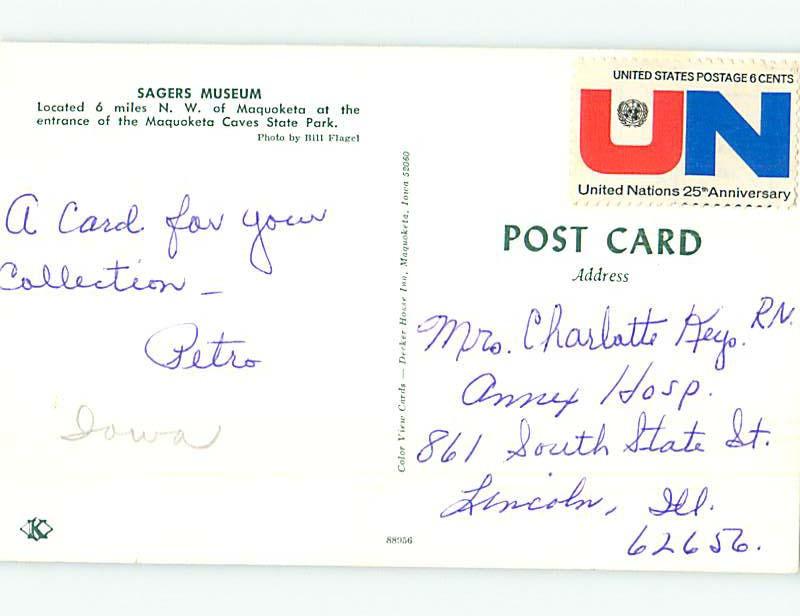 SAGERS MUSEUM
Located 6 miles N. W. of Maquoketa at the
entrance of the Maquoketa Caves State Park.
Photo by Bill Flagel
A Card for your
Collection –
Petro
Iowa
K
88956
Color View Cards — Decker House Inn, Maquoketa, Iowa 52060
UNITED STATES POSTAGE 6 CENTS
UN
United Nations 25th Anniversary
POST CARD
Address
Mrs. Charlotte Keys. R.N.
Annex Hosp.
861 South State St.
Lincoln, Ill.
62656.